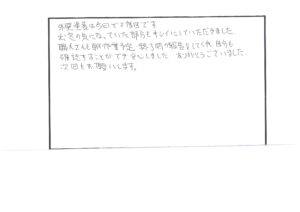 外壁塗装は今回で2度目です
お忘の気になっていた部分もキレイにしていただきました
職人さんも朝の作業予定、終了時の報告をしてくれ自分も
確認することができ安心しました ありがとうございました
次回もお願いします。